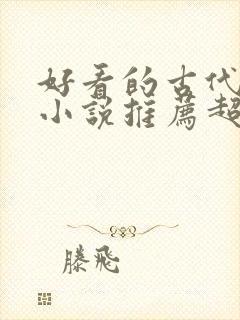 好看的古代
小說推薦超
滕飛